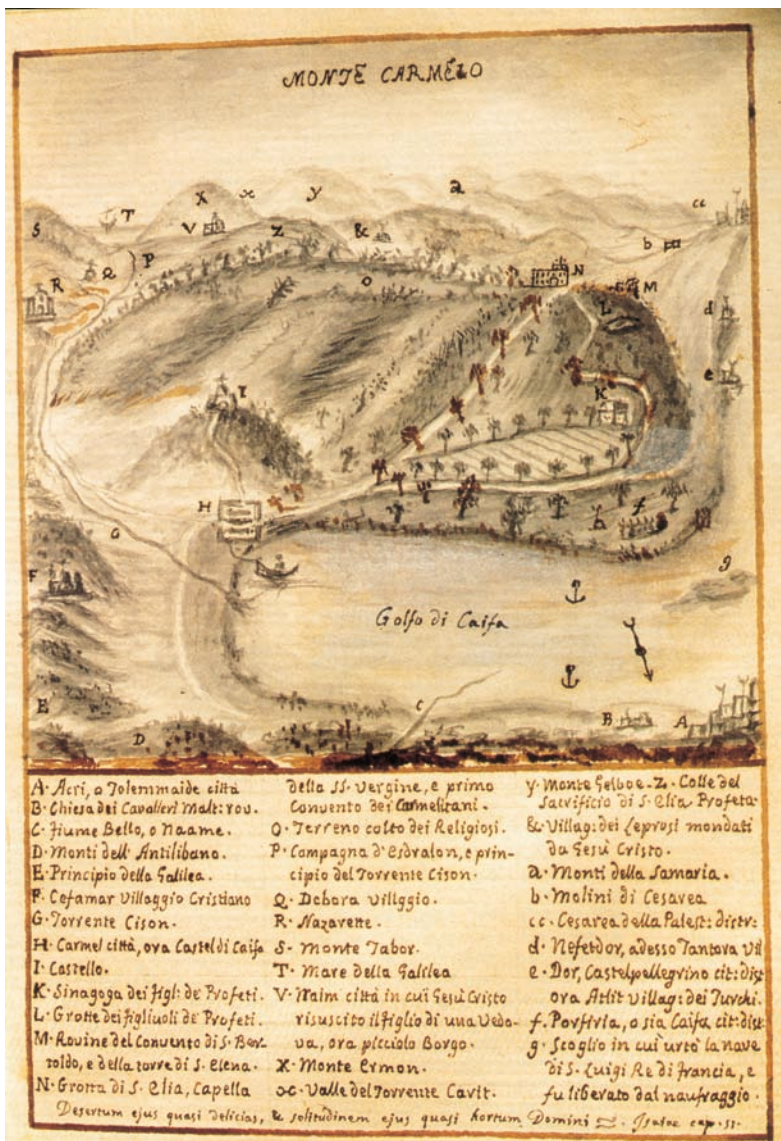 MONTE CARMÉLO
X
x
y
a
cc
S
T
V
Z
&
b
Q
P
N
R
o
M
L
d
e
I
K
H
h
f
G
F
g
Golfo di Caifa
E
D
C
B
A
A. Acri, o Tolemmaide città
B. Chiesa dei Cavalieri Malt: rov.
C. Fiume Bello, o Naame.
D. Monti dell' Antilibano.
E. Principio della Galilea.
F. Cefamar Villaggio Cristiano
G. Torrente Cison.
H. Carmel città, ora Castel di Caifa
I. Castello.
K. Sinagoga dei figl: de' Profeti.
L. Grotte dei figliuoli de' Profeti.
M. Rovine del Convento di S. Ber-
toldo, e della torre di S. Elena.
N. Grotta di S. Elia, Capella
della SS. Vergine, e primo
Convento dei Carmelitani.
O. Terreno colto dei Religiosi.
P. Campagna d'Esdralon, e prin-
cipio del Torrente Cison.
Q. Debora villggio.
R. Nazarette.
S. Monte Tabor.
T. Mare della Galilea
V. Naim città in cui Gesù Cristo
risuscito il figlio di una Vedo-
va, ora picciolo Borgo.
X. Monte Ermon.
x. Valle del Torrente Cavit.
y. Monte Gelboe. Z. Colle del
Sacrificio di S. Elia Profeta.
&. Villag: dei Leprosi mondati
da Gesù Cristo.
a. Monti della Samaria.
b. Molini di Cesarea
cc. Cesarea della Palest: distr:
d. Nefetdor, adesso Tantora vil
e. Dor, Castelpellegrino cit: dist
ora Atlit villag: dei Turchi.
f. Porfiria, o sia Caifa cit: dist:
g. Scoglio in cui urtò la nave
di S. Luigi Re di Francia, e
fu liberato dal naufraggio.
Desertum ejus quasi delicias, & solitudinem ejus quasi hortum Domini Isaiae cap. 51.